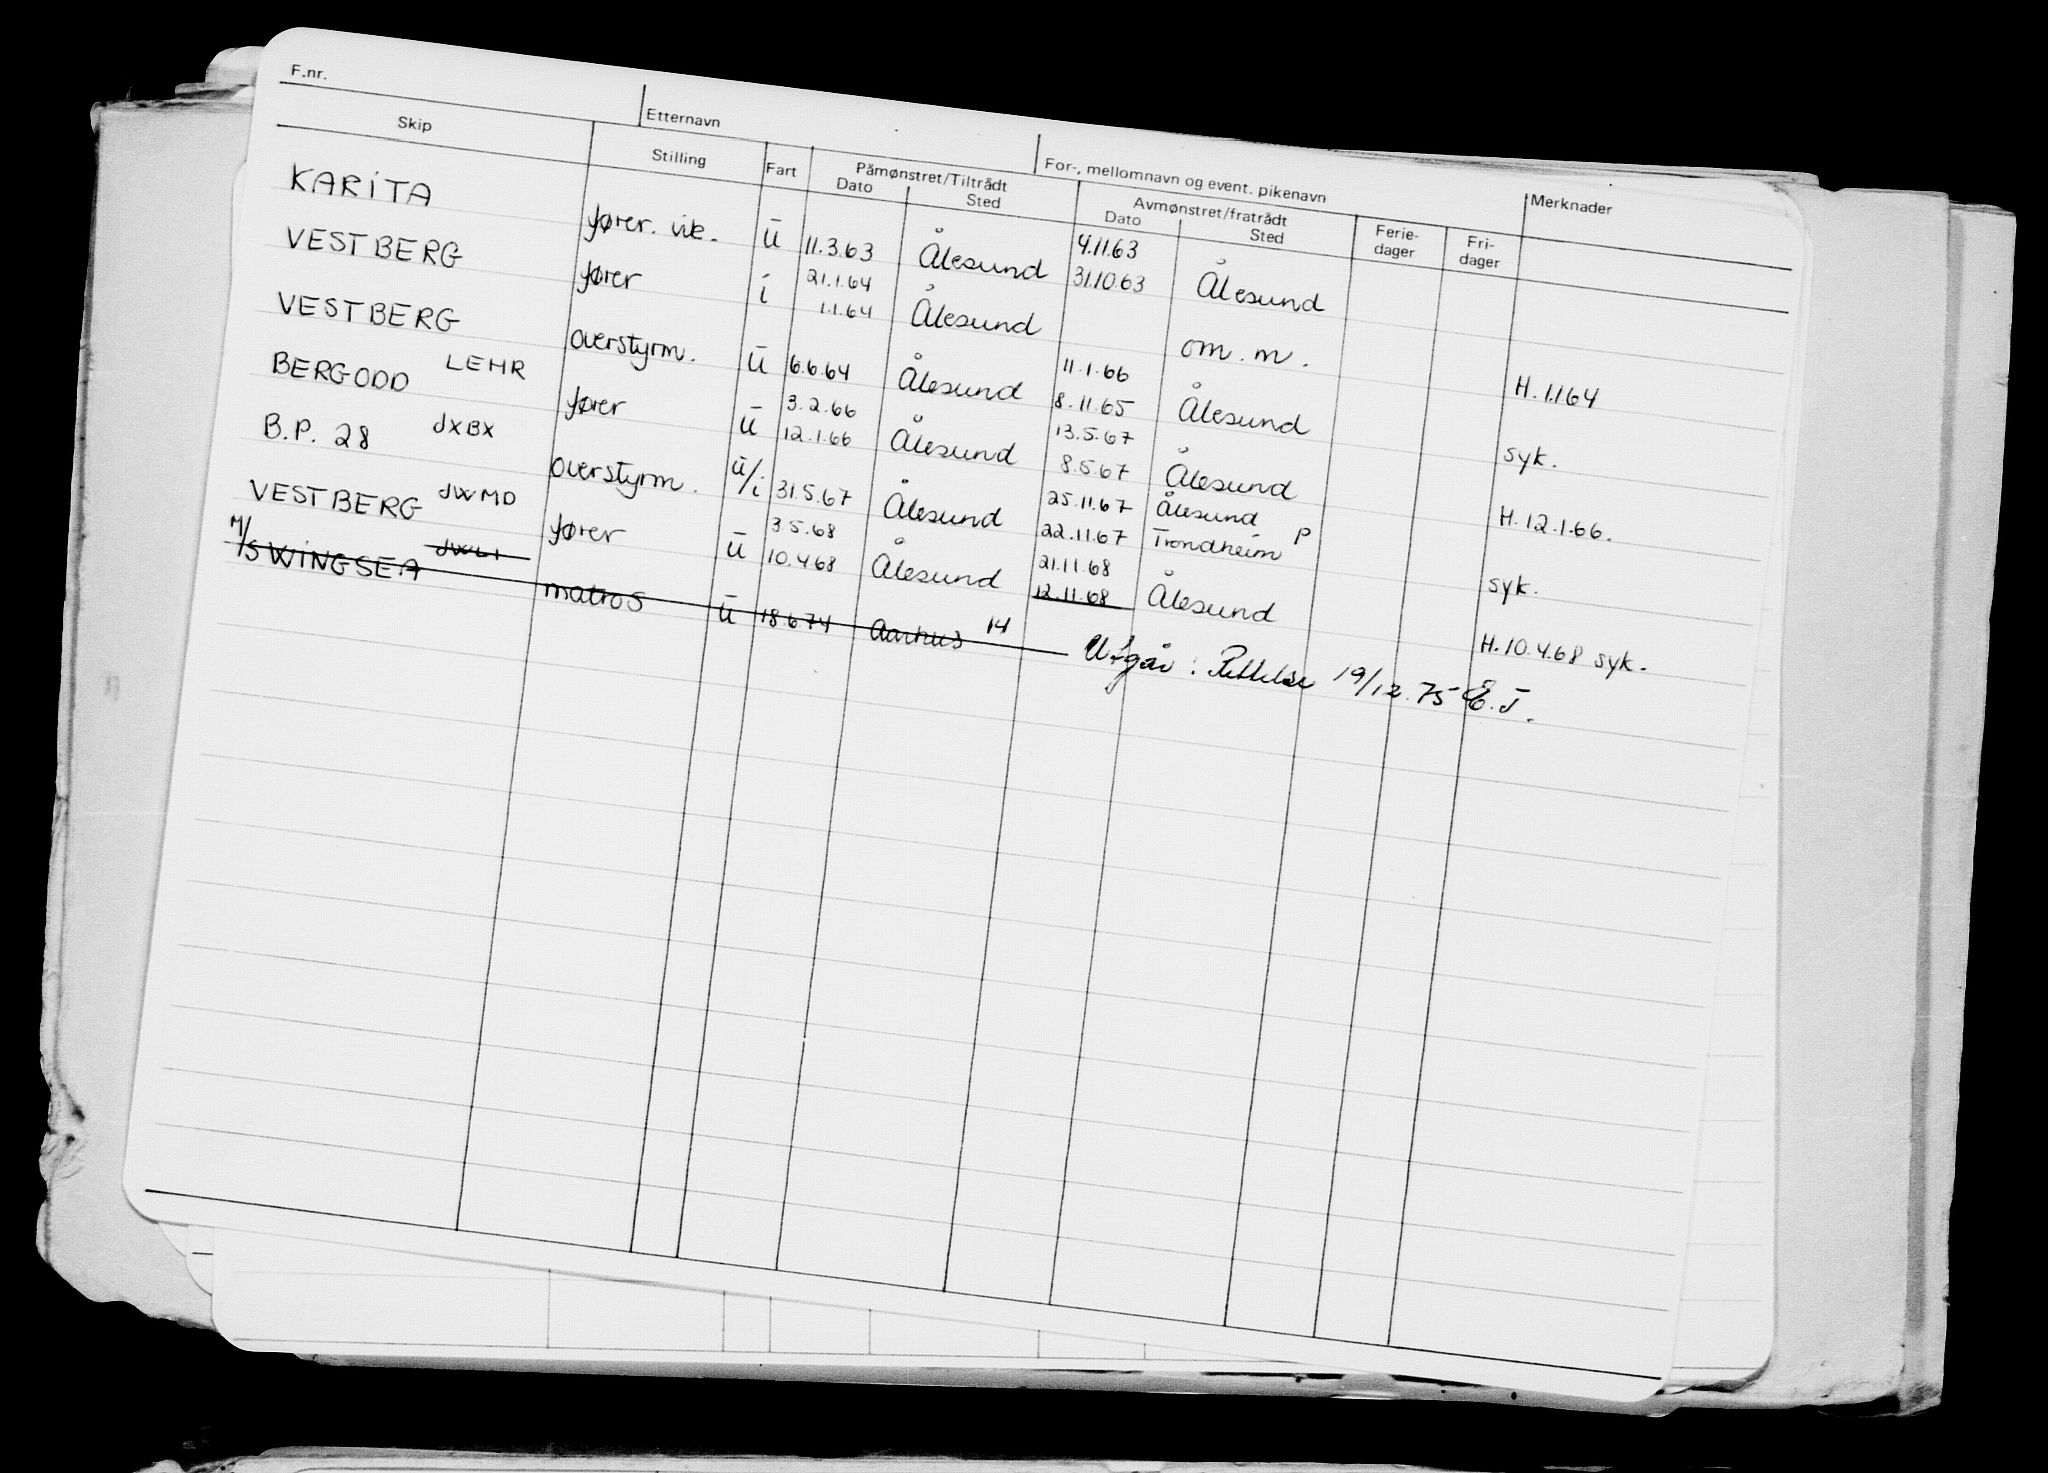 F.nr. Etternavn For-, mellomnavn og event. pikenavn
Skip Stilling Fart Påmønstret/Tiltrådt Dato Sted Avmønstret/fratrådt Dato Sted Ferie-dager Fri-dager Merknader
KARITA fører. vik. ū 11.3.63 Ålesund 4.11.63 31.10.63 Ålesund
VESTBERG fører i 21.1.64 1.1.64 Ålesund om.m. H.1.1.64
VESTBERG overstyrm. ū 6.6.64 Ålesund 11.1.66 8.11.65 Ålesund syk.
BERGODD LEHR fører ū 3.2.66 12.1.66 Ålesund 13.5.67 8.5.67 Ålesund H.12.1.66.
B.P. 28 JXBX overstyrm. ū/i 31.5.67 Ålesund 25.11.67 22.11.67 Ålesund P Trondheim syk.
VESTBERG JWMD fører ū 3.5.68 10.4.68 Ålesund 21.11.68 12.11.68 Ålesund H.10.4.68 syk.
M/S WINGSEA matros ū 18.6.74 Aarhus 14 Utgår: Rettelse 19/12.75 E.J.